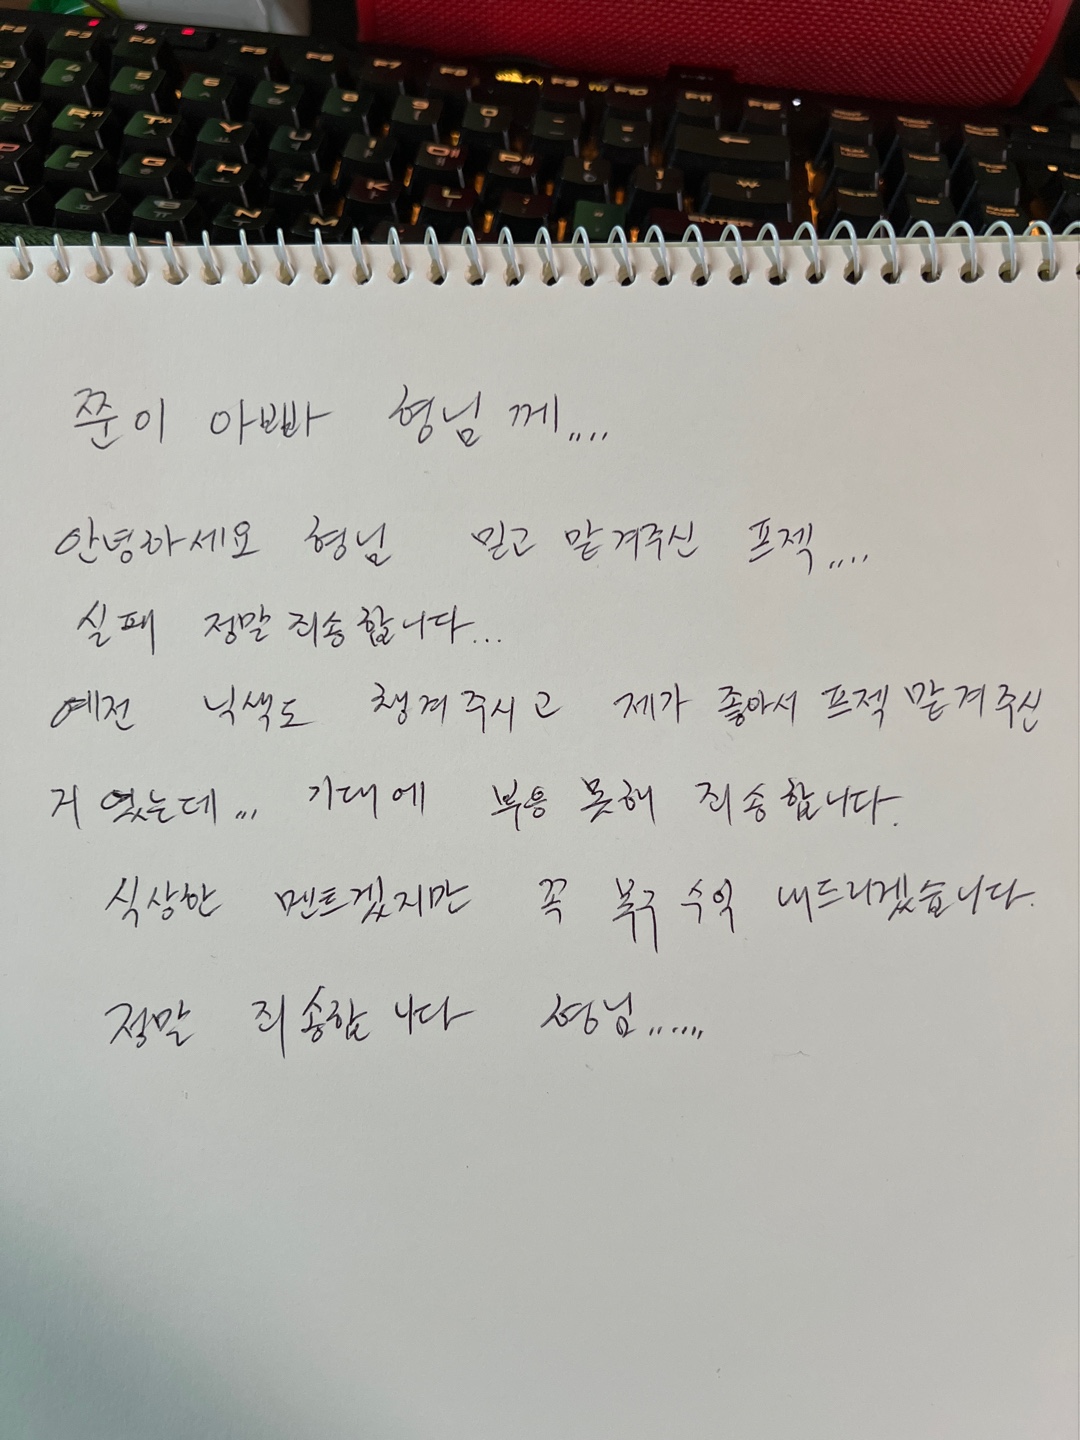 F3 F4 F5 F6 F7 F8 F9 F10 F11 F12
4 5 6 7 8 9 0 - =
E R T Y U I O P
D F G H J K L ENTER
C V B N M
쭌이 아빠 형님께....
안녕하세요 형님 믿고 맡겨주신 프젝....
실패 정말 죄송합니다...
예전 닉색도 챙겨주시고 제가 좋아서 프젝 맡겨주신
거였는데... 기대에 부응 못해 죄송합니다.
식상한 멘트겠지만 꼭 복구 수익 내드리겠습니다.
정말 죄송합니다 형님......